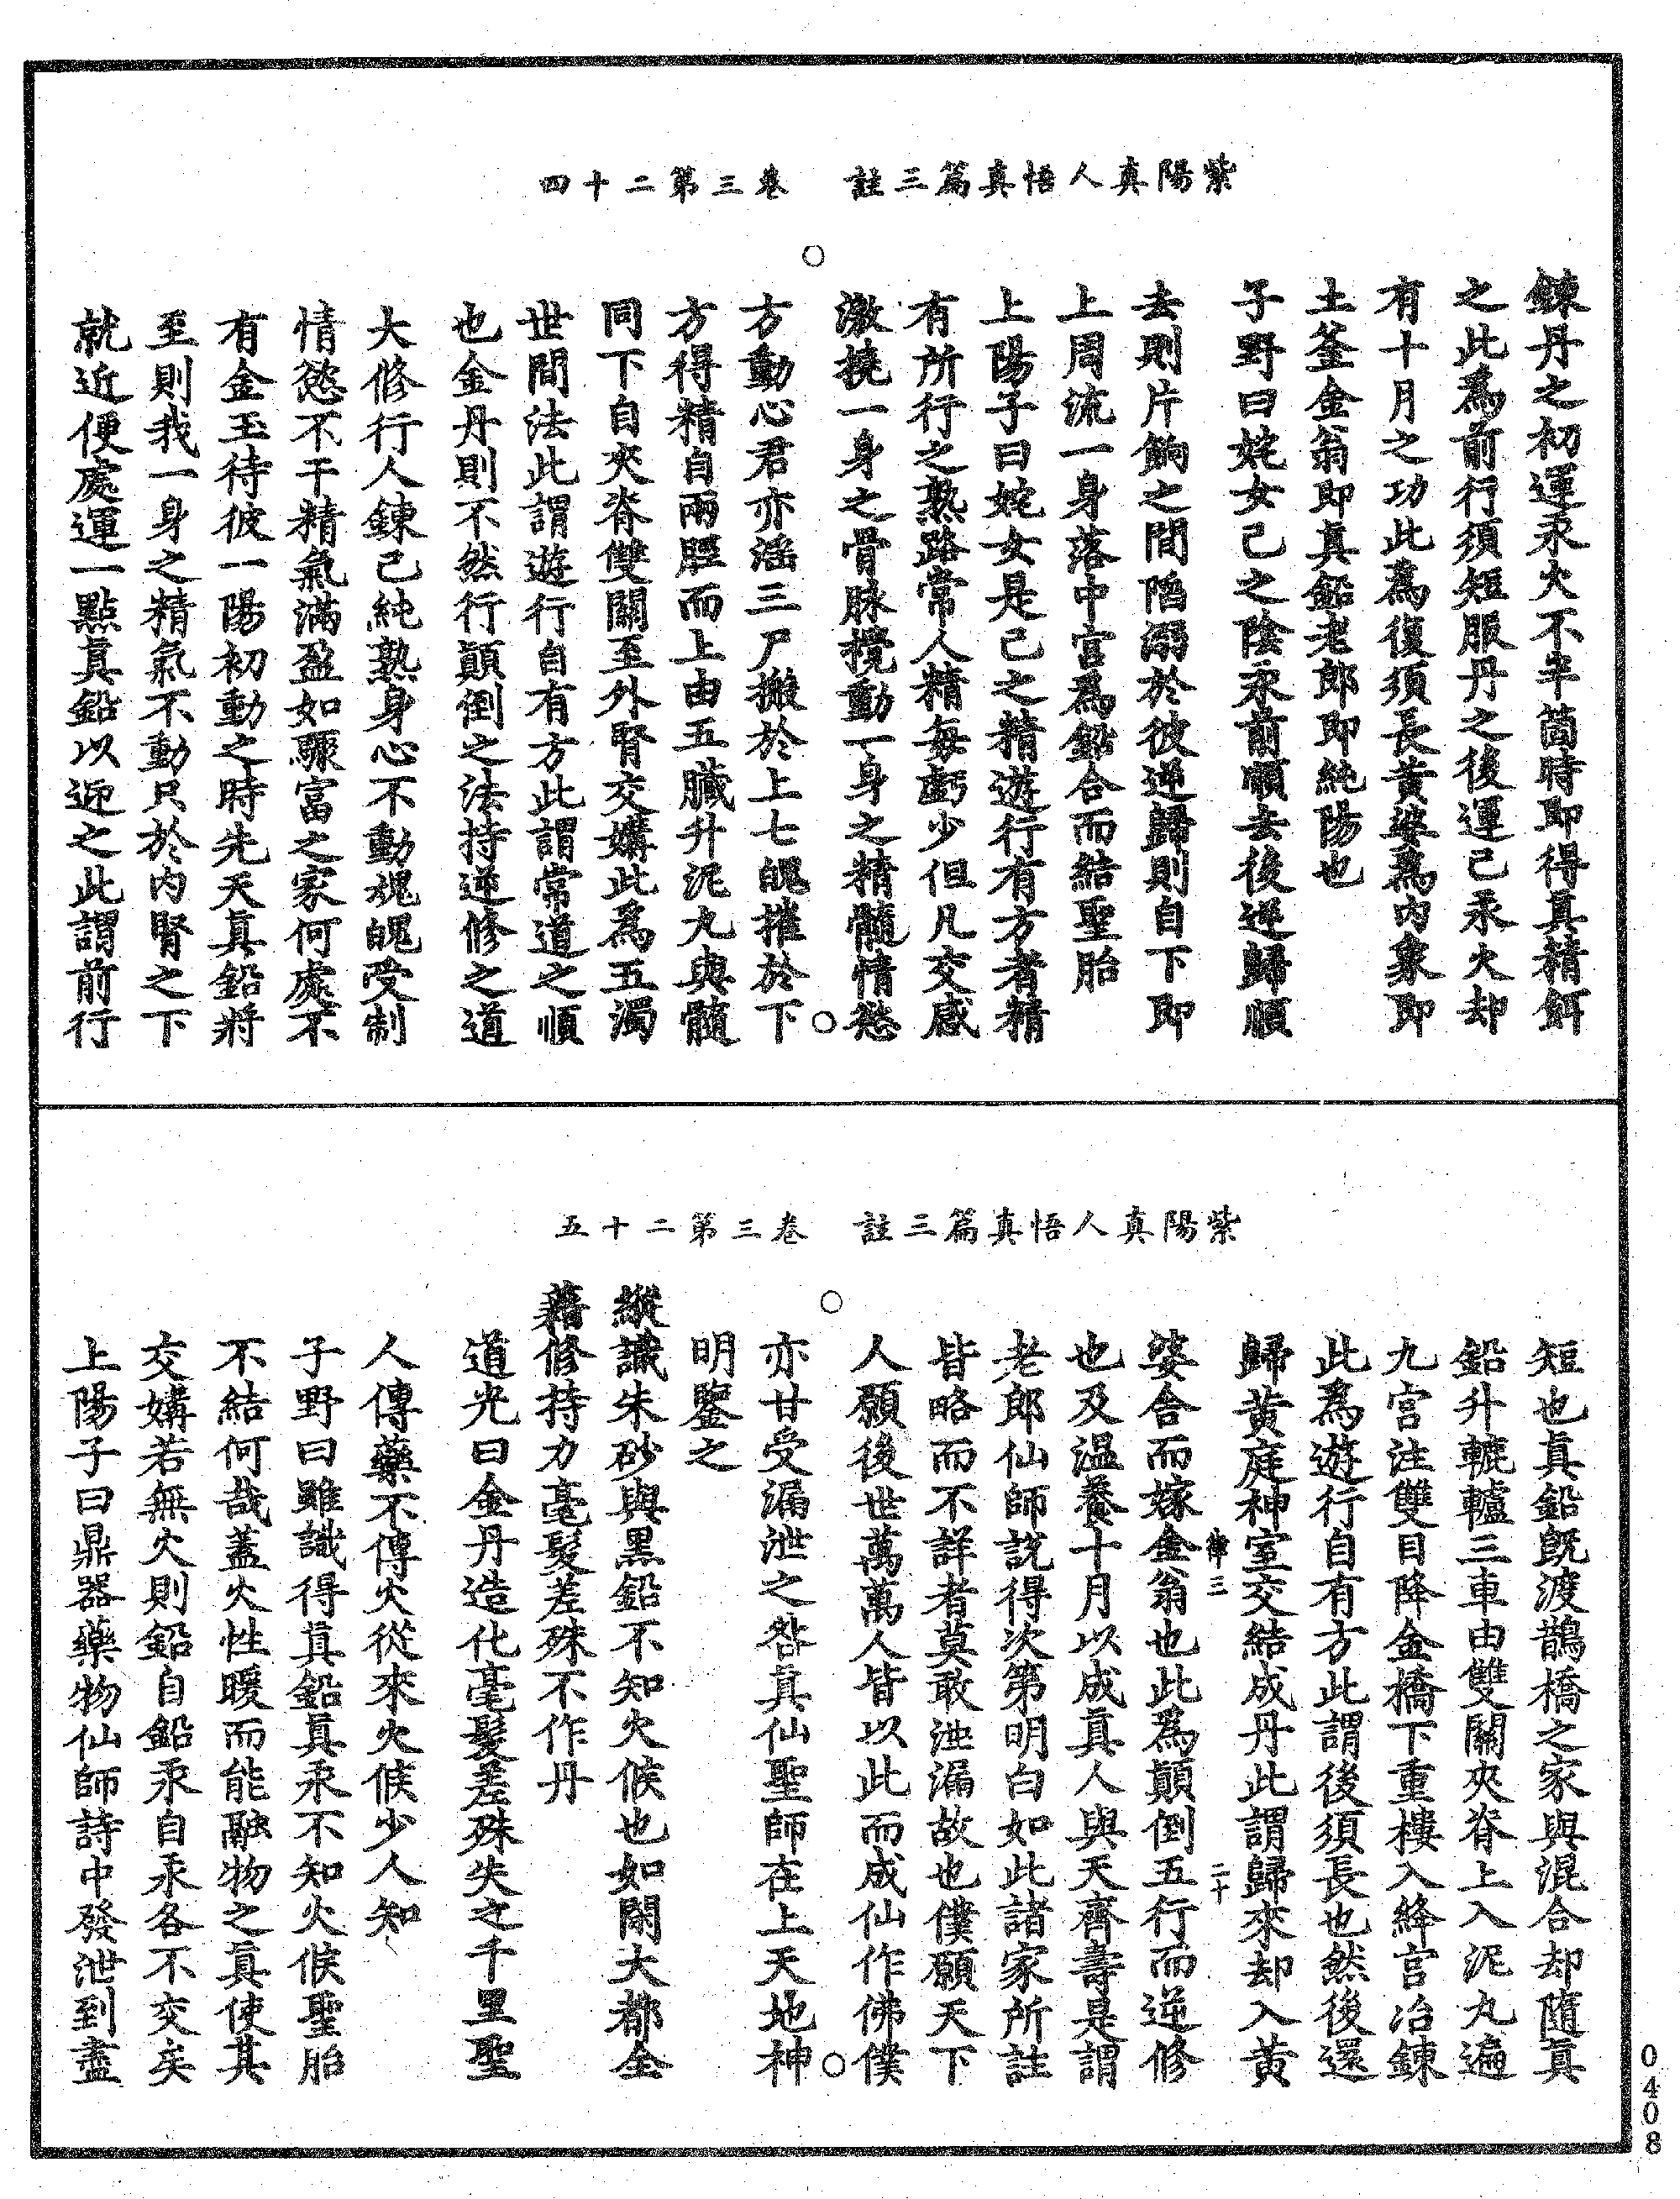 紫陽真人悟真篇三註　卷三第二十四
鍊丹之初運汞火不半箇時即得真精餌
之此為前行須短服丹之後運己汞火却
有十月之功此為復須長黃婆為內象即
土釜金翁即真鉛老郎即純陽也
子野曰姹女己之陰汞前順去後逆歸順
去則片餉之間陷溺於彼逆歸則自下即
上周流一身落中宮為鉛合而結聖胎
上陽子曰姹女是己之精遊行有方者精
有所行之熟路常人精每虧少但凡交感
激撓一身之骨脉攪動一身之精髓情慾
方動心君亦淫三尸搬於上七魄摧於下
方得精自兩脛而上由五臟升泥丸與髓
同下自夾脊雙關至外腎交媾此為五濁
世間法此謂遊行自有方此謂常道之順
也金丹則不然行顛倒之法持逆修之道
大修行人鍊己純熟身心不動魂魄受制
情慾不干精氣滿盈如驟富之家何處不
有金玉待彼一陽初動之時先天真鉛將
至則我一身之精氣不動只於內腎之下
就近便處運一點真鉛以迎之此謂前行
紫陽真人悟真篇三註　卷三第二十五
短也真鉛既渡鵲橋之家與混合却隨真
鉛升轆轤三車由雙關夾脊上入泥丸遍
九宮注雙目降金橋下重樓入絳宮冶鍊
此為遊行自有方此謂後須長也然後還
歸黃庭神室交結成丹此謂歸來却入黃
律三　二十
婆合而嫁金翁也此為顛倒五行而逆修
也及溫養十月以成真人與天齊壽是謂
老郎仙師說得次第明白如此諸家所註
皆略而不詳者莫敢洩漏故也僕願天下
人願後世萬萬人皆以此而成仙作佛僕
亦甘受漏泄之咎真仙聖師在上天地神
明鑒之
縱識朱砂與黑鉛不知火候也如閑大都全
藉修持力毫髮差殊不作丹
道光曰金丹造化毫髮差殊失之千里聖
人傳藥不傳火從來火候少人知
子野曰雖識得真鉛真汞不知火候聖胎
不結何哉蓋火性暖而能融物之真使其
交媾若無火則鉛自鉛汞自汞各不交矣
上陽子曰鼎器藥物仙師詩中發泄到盡
0408